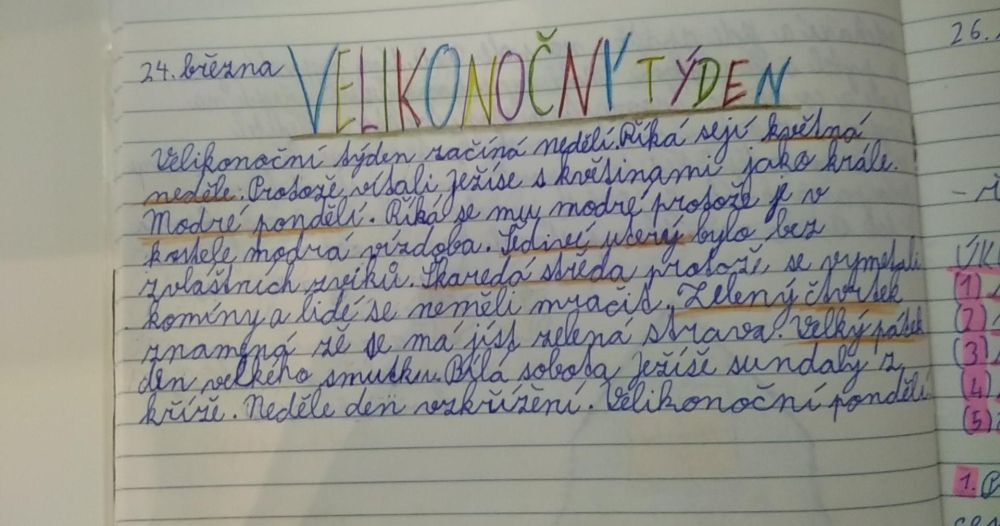 24. března VELIKONOČNÝ TÝDEN
Velikonoční týden začíná nedělí. Říká sejí květná
neděle. Protože vítali Ježíše s květinami jako krále.
Modré pondělí. Říká se mu modré protože je v
kostele modrá výzdoba. Šedivé uterý bylo bez
zvláštních zviků. Škaredá středa protože, se vymetali
komíny a lidé se neměli mračit. Zelený čtvrtek
znamená zě se má jíst zelená strava. Velký pátek
den velkého smutku. Bílá sobota Ježíše sundaly z
kříže. Neděle den vzkřížení. Velikonoční pondělí.
26.
- ř
ÚK
1)
2)
(3)
(4)
(5)
1.